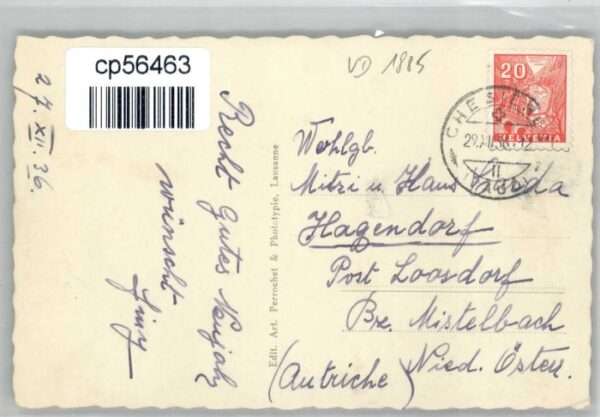 cp56463
VD 1885
27. XII. 36.
Recht gutes Neujahr
wünscht
20
HELVETIA
29.XII.36.-12
II
Edit. Art. Perrochet & Phototypie, Lausanne
Wohlgb.
Mitzi u. Hans
Hagendorf
Post Loosdorf
Bz. Mistelbach
(Autriche) Nied. Österr.